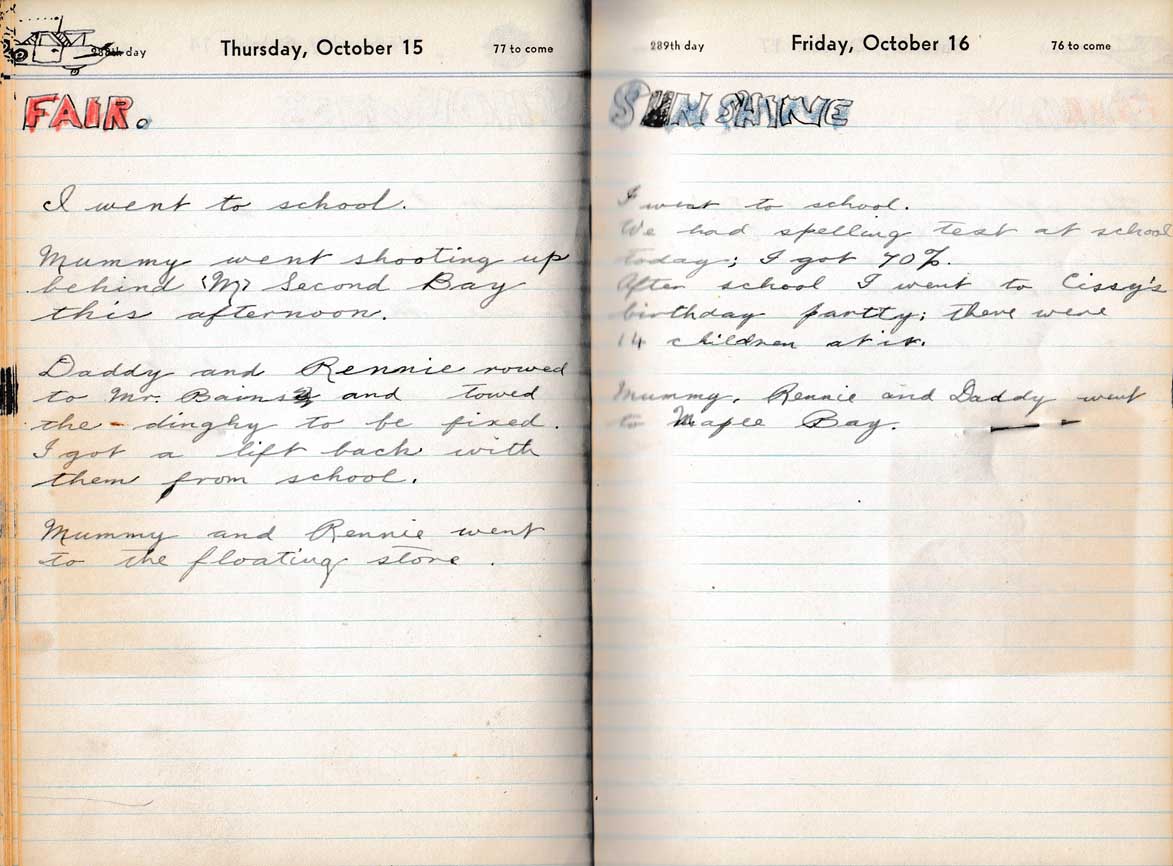 288th day
Thursday, October 15
77 to come
FAIR.
I went to school.
Mummy went shooting up
behind "M" Second Bay
this afternoon.
Daddy and Rennie rowed
to Mr. Bains and towed
the - dinghy to be fixed.
I got a lift back with
them from school.
Mummy and Rennie went
to the floating store .
289th day
Friday, October 16
76 to come
SUN SHINE
I went to school.
We had spelling test at school
today; I got 70%.
After school I went to Cissy's
birthday partty; there were
14 children at it.
Mummy, Rennie and Daddy went
to Maple Bay.